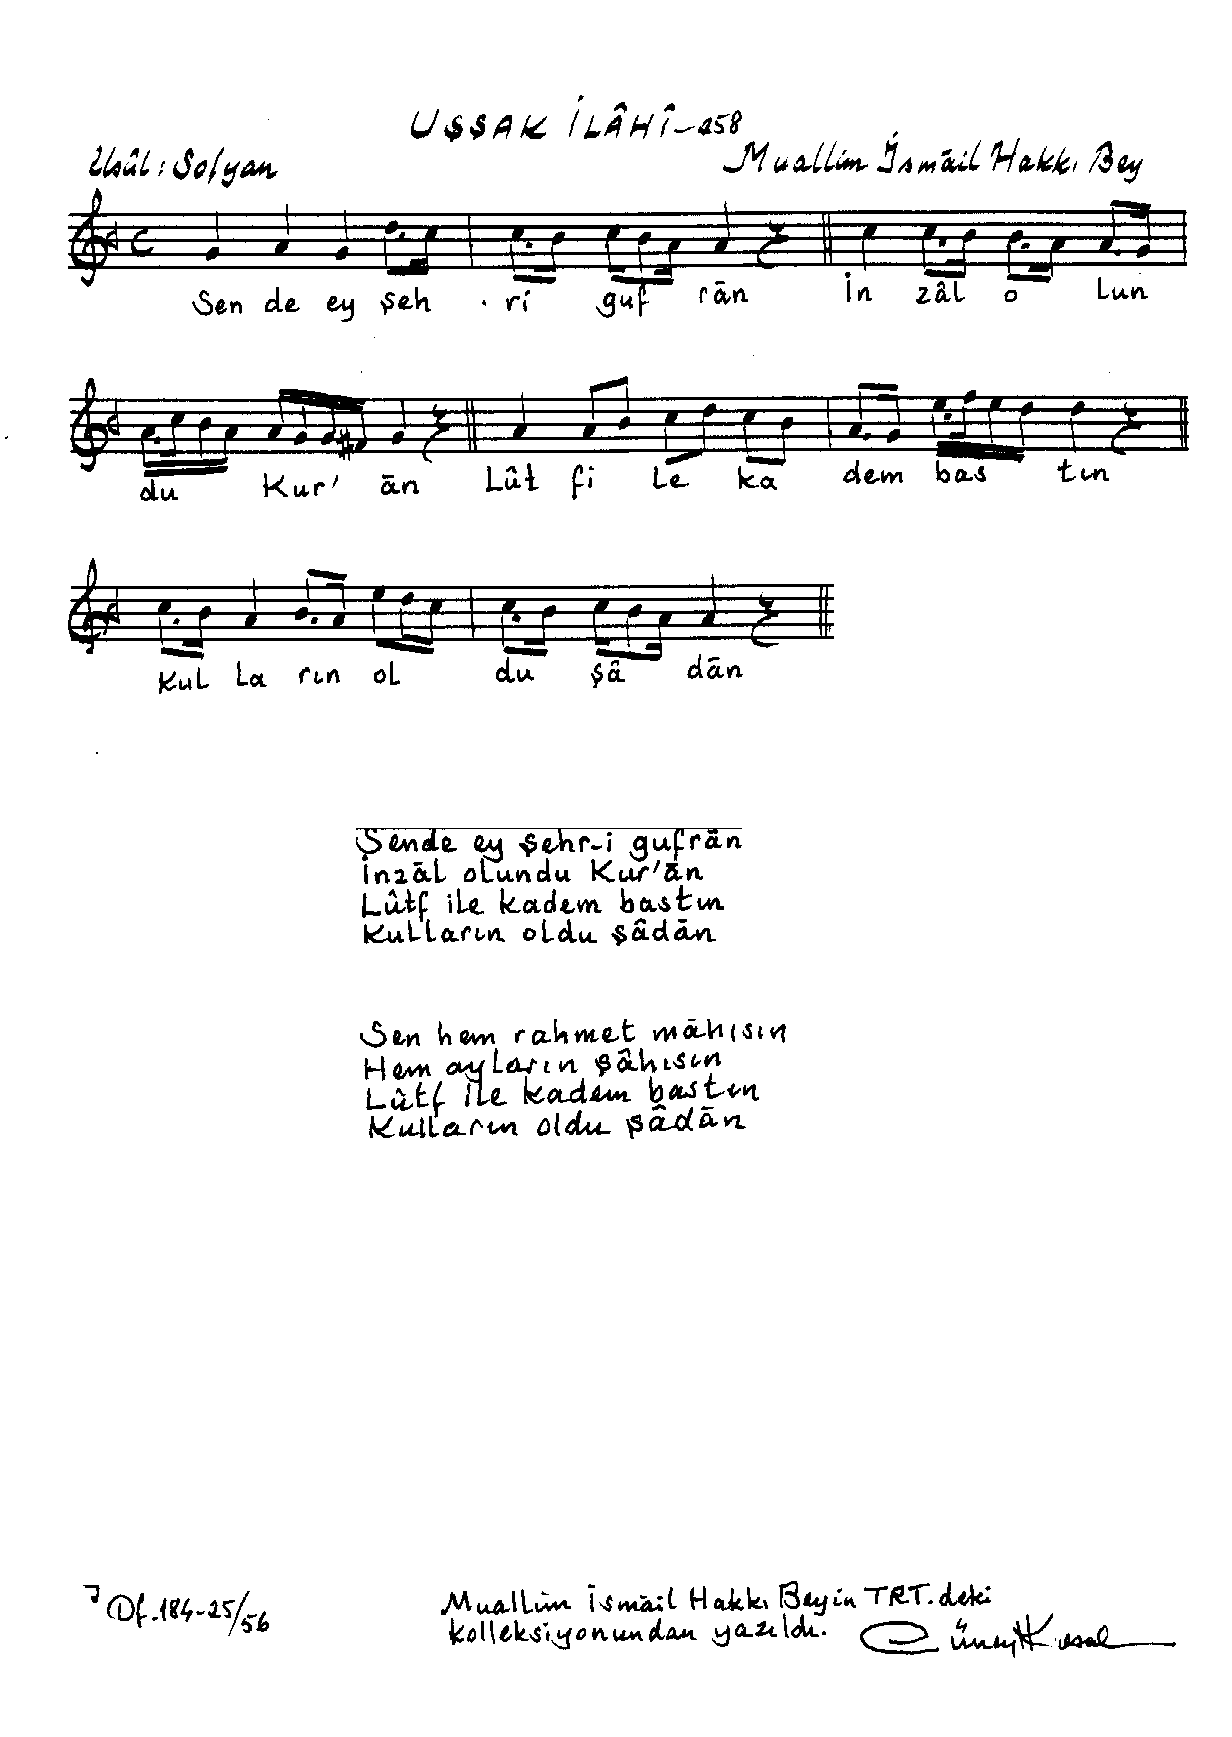 UŞŞAK İLÂHÎ-258
Usûl: Sofyan
Muallim İsmāil Hakkı Bey
Sen de ey şeh - ri guf rān İn zâl o lun
du Kur' ān Lût fi le ka dem bas tın
Kul la rın ol du şâ dān
Sende ey şehr-i gufrān
İnzāl olundu Kur'ān
Lûtf ile kadem bastın
Kulların oldu şâdān
Sen hem rahmet māhısın
Hem ayların şâhısın
Lûtf ile kadem bastın
Kulların oldu şâdān
Df.184-25/56
Muallim İsmāil Hakkı Beyin TRT.deki
kolleksiyonundan yazıldı. Cüneyt Kosal